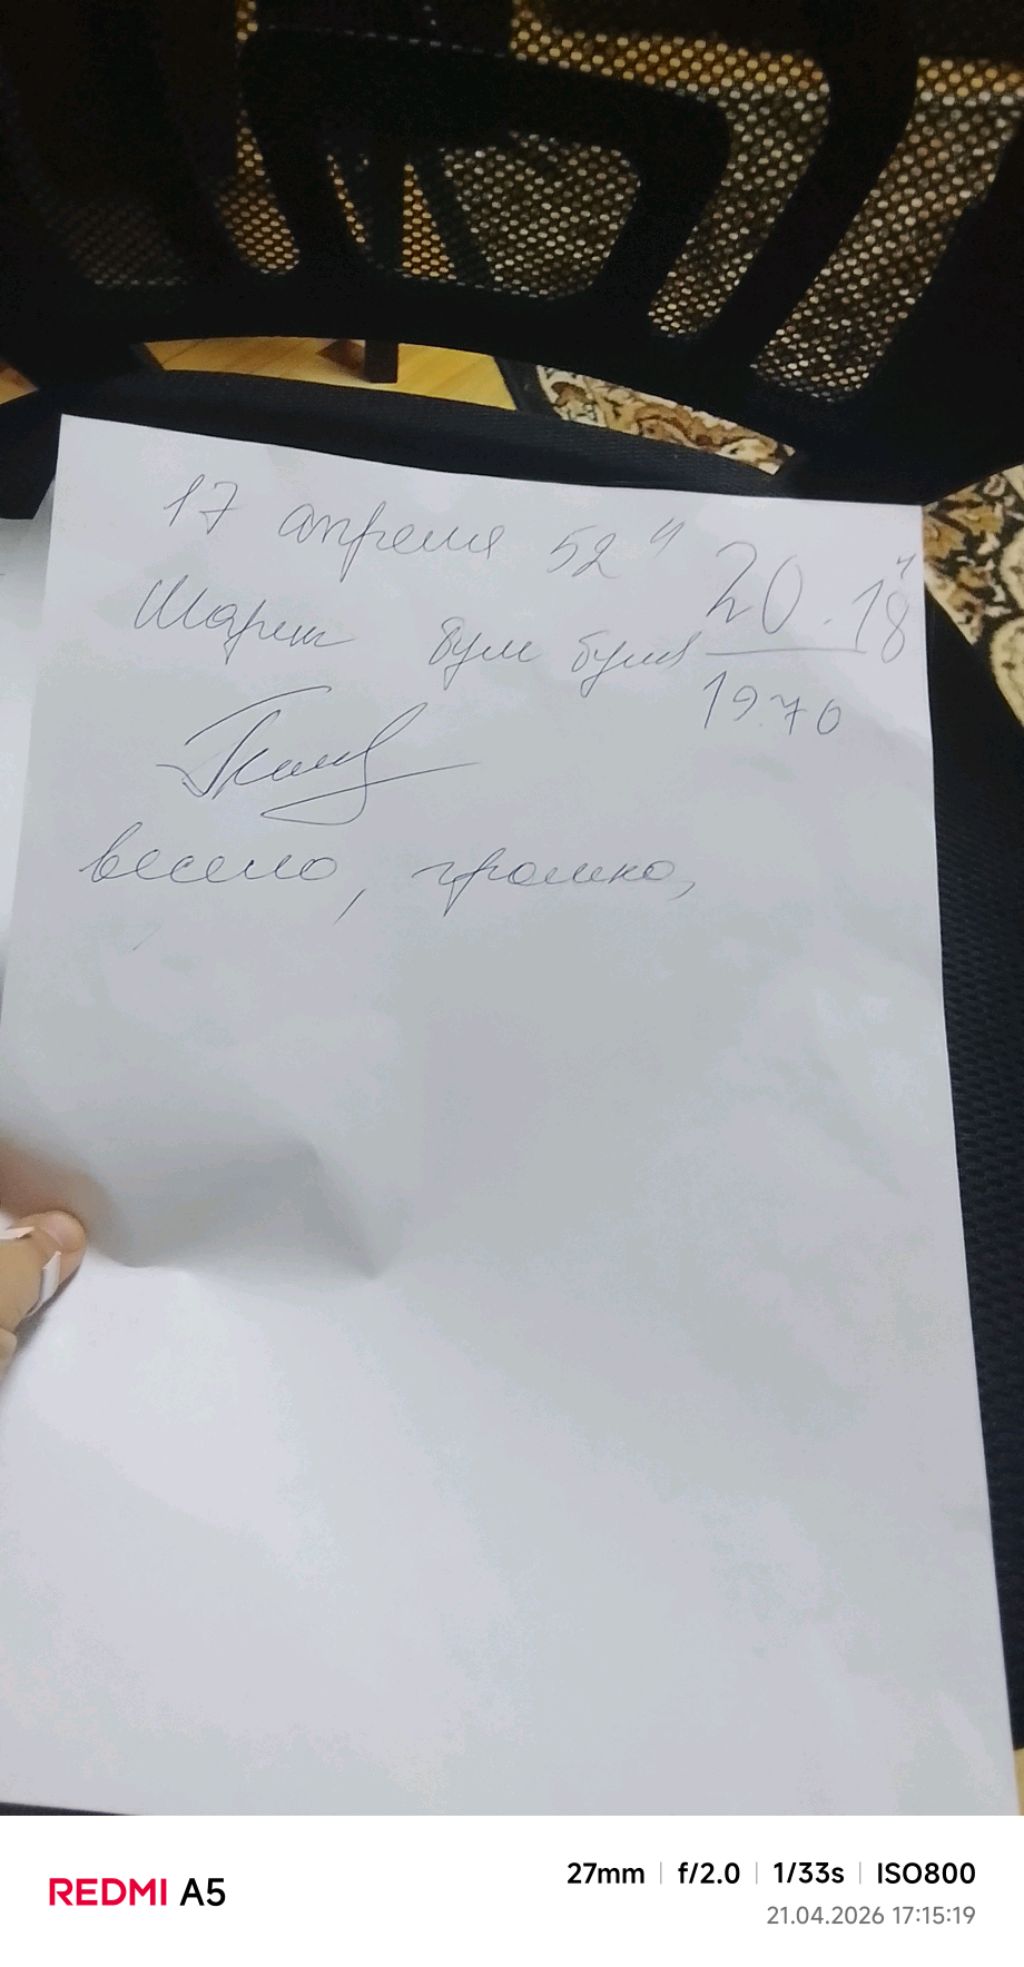 17 апреля 52 ч
20.18 ч
Шарик бум бум
1970
весело, громко,
REDMI A5
27mm | f/2.0 | 1/33s | ISO800
21.04.2026 17:15:19